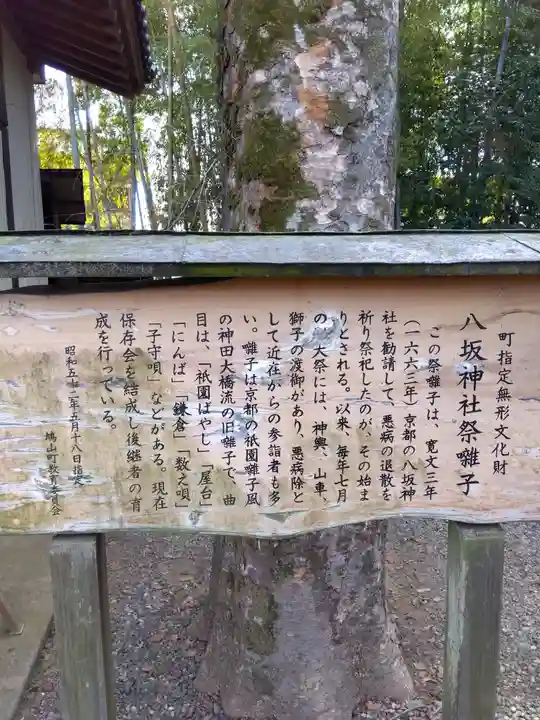 町指定無形文化財
八坂神社祭囃子
この祭囃子は、寛文三年
(一六六三年)京都の八坂神
社を勧請して、悪病の退散を
祈り祭祀したのが、その始ま
りとされる。以来、毎年七月
の、大祭には、神輿、山車、
獅子の渡御があり、悪病除と
して近在からの参詣者も多
い。囃子は京都の祇園囃子風
の神田大橋流の旧囃子で、曲
目は、「祇園ばやし」「屋台」
「にんば」「鎌倉」「数え唄」
「子守唄」などがある。現在
保存会を結成し後継者の育
成を行っている。
昭和五十二年五月十八日指定
鳩山町教育委員会